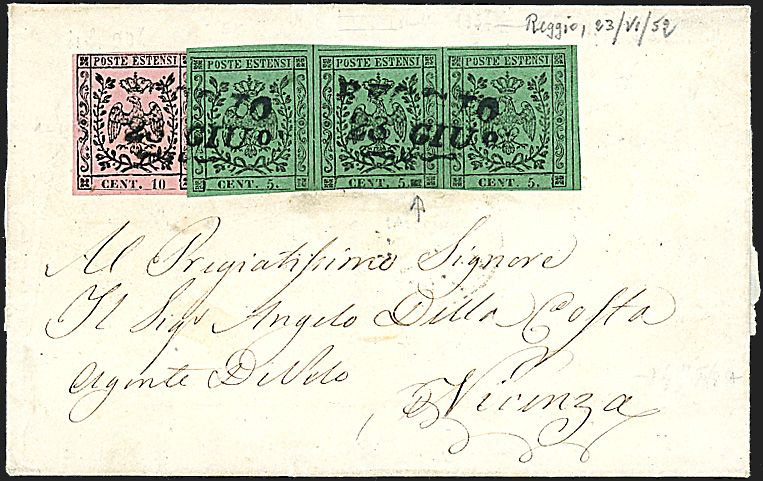 Reggio, 23/VI/52
POSTE ESTENSI POSTE ESTENSI POSTE ESTENSI POSTE ESTENSI
23 GIUº 23 GIUº
CENT. 10 CENT. 5. CENT. 5. CENT. 5.
Al Pregiatissimo Signore
Il Sigr Angelo Dalla Costa
Agente DeVelo
Vicenza